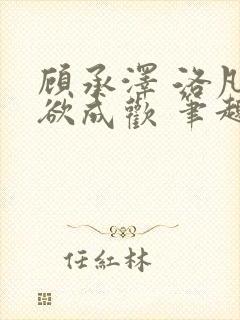 顧承澤 洛凡
欲成歡 筆趣
任紅林